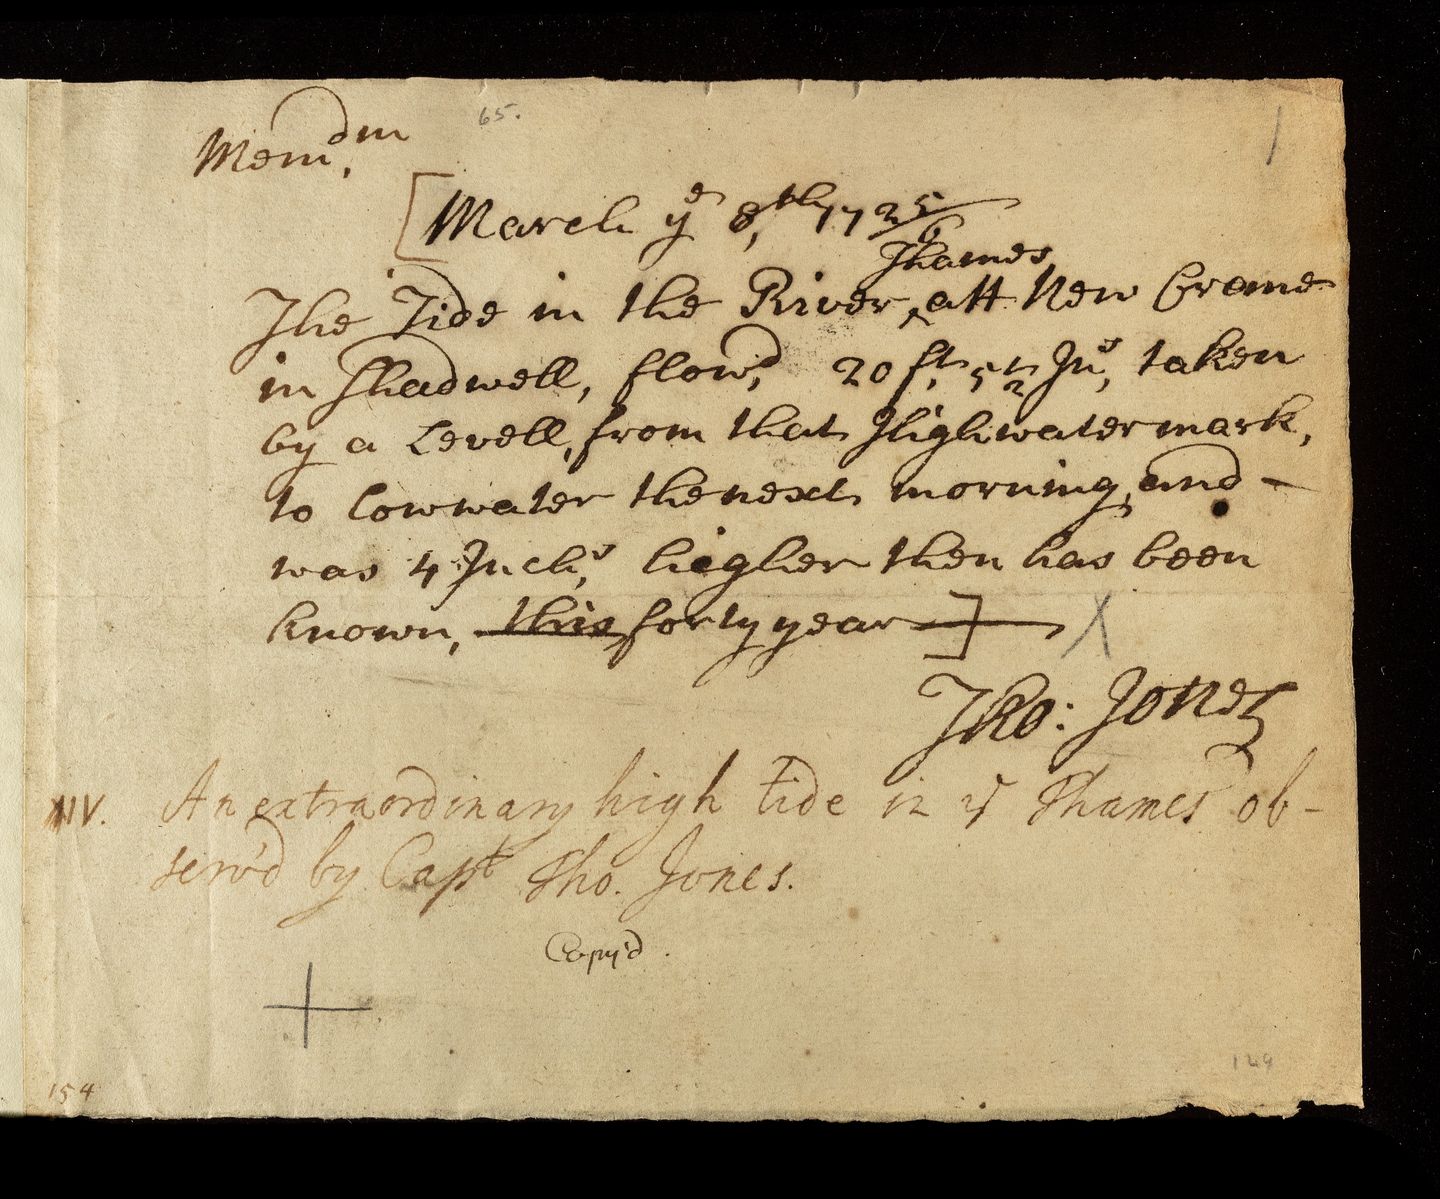 65.
Memdm,
[March ye 8,th 1725/6
Thames
The Tide in the River, ^ att New Crane
in Shadwell, flowd, 20 ft, 5 1/2 Ins, taken
by a Levell, from that Highwatermark,
to Lowwater the next morning, and –
was 4 Inchs, higher then has been
known, this forty year]
Tho: Jones
XIV. An extraordinary high tide in ye Thames ob-
serv'd by Capt Tho. Jones.
Copy'd.
154
129